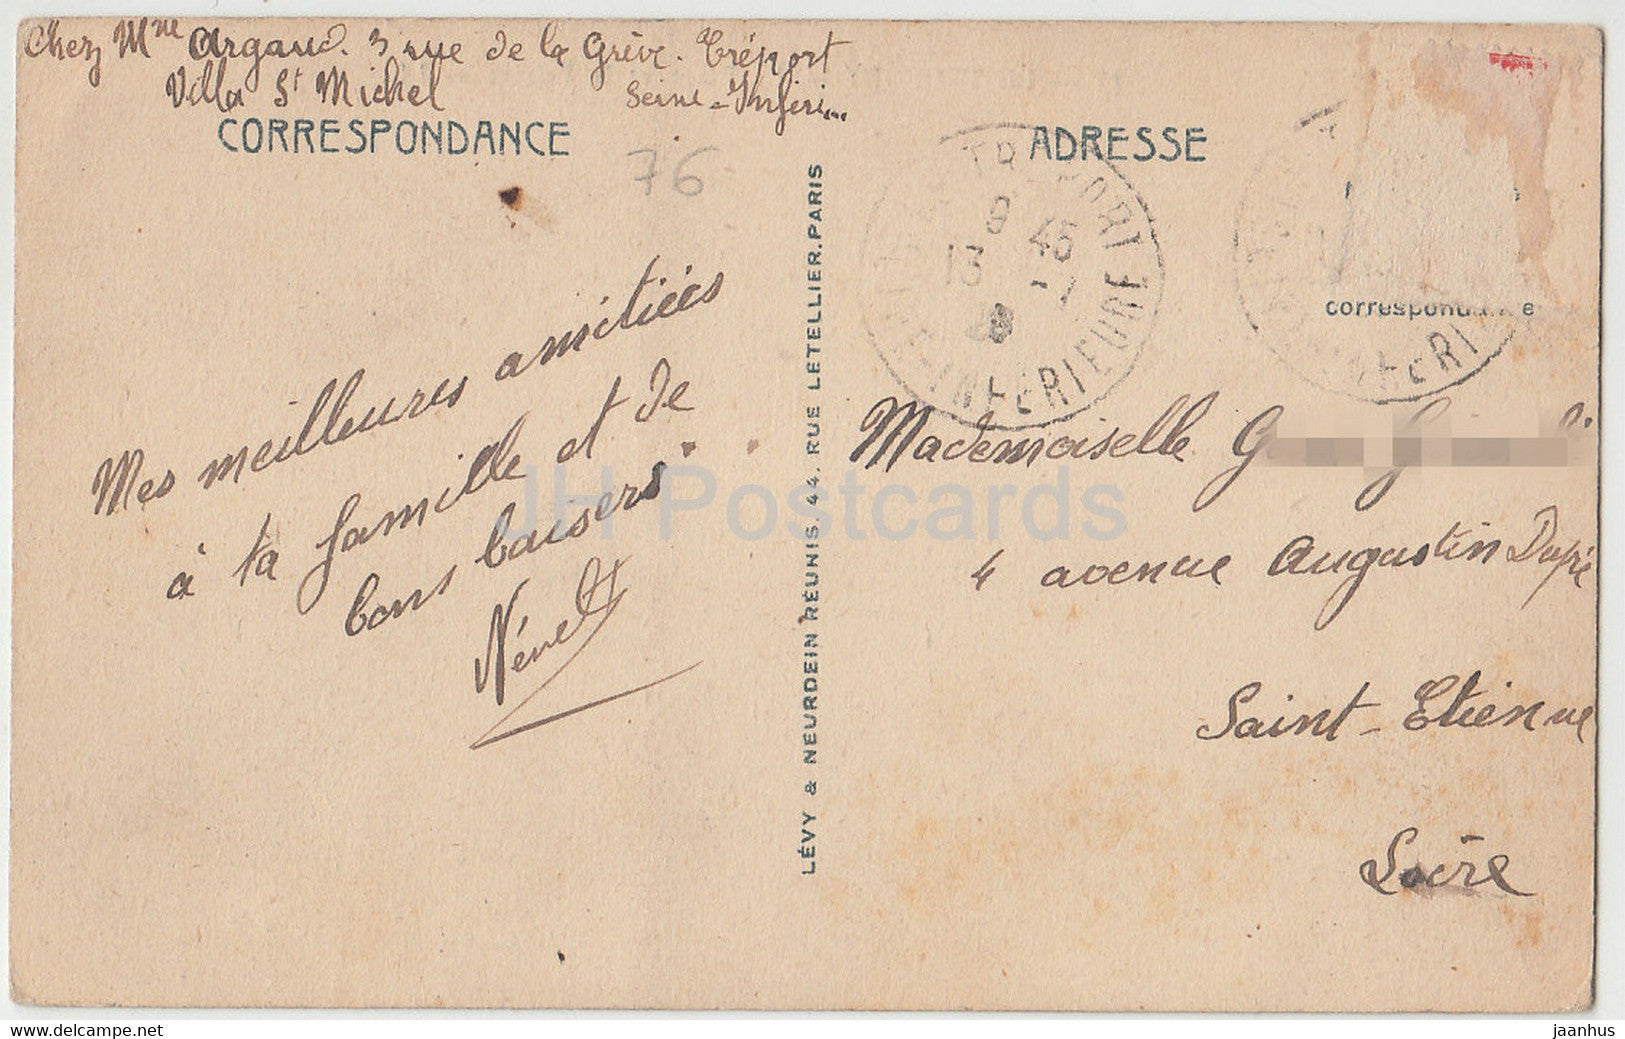 Chez Mme Argaud. 3 rue de la Grève. Tréport
Villa St Michel Seine-Inféri...
CORRESPONDANCE
76
Mes meilleures amitiés
à ta famille et de
bons baisers
LÉVY & NEURDEIN RÉUNIS, 44, RUE LETELLIER, PARIS
ADRESSE
9 45
13 -7
INFERIEURE
correspondance
Mademoiselle
4 avenue Augustin Dupré
Saint-Etienne
Loire
JH Postcards
www.delcampe.net
jaanhus